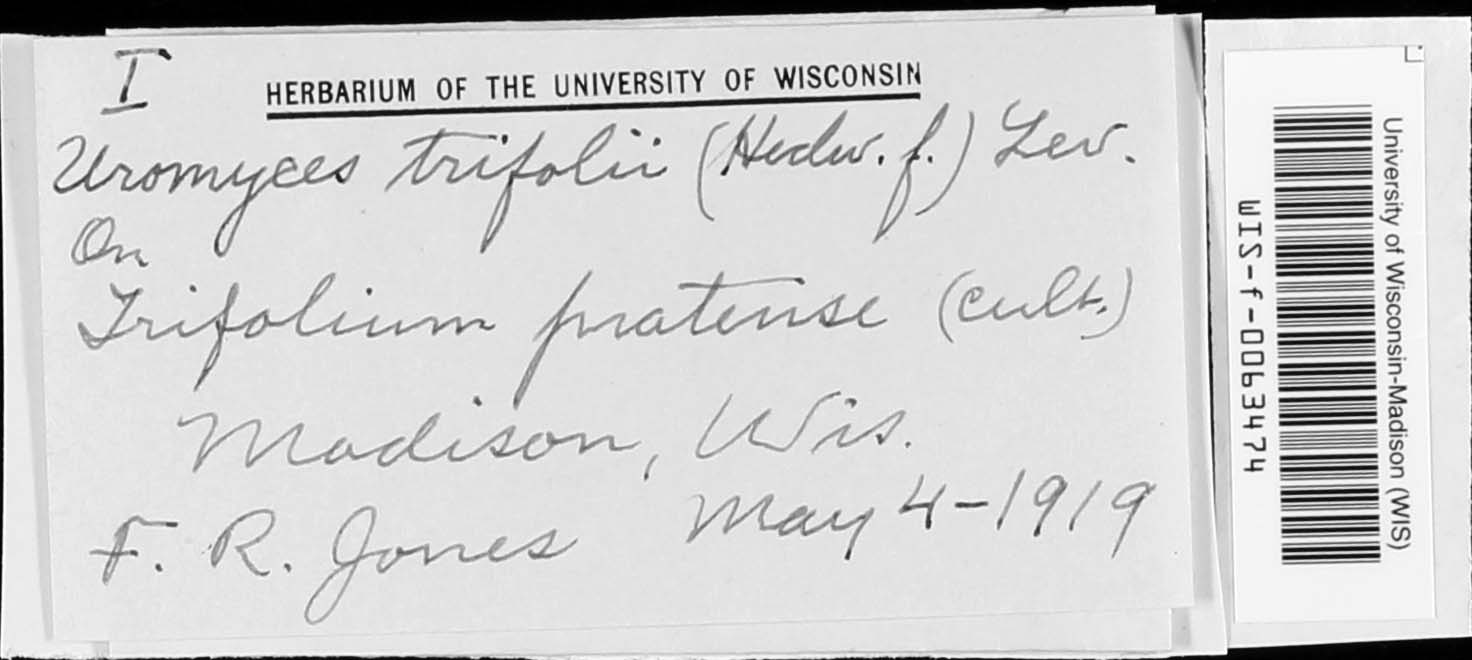 I
HERBARIUM OF THE UNIVERSITY OF WISCONSIN
Uromyces trifolii (Hedw. f.) Lev.
On
Trifolium pratense (cult.)
Madison, Wis.
F. R. Jones May 4-1919
University of Wisconsin-Madison (WIS)
WIS-f-0063474